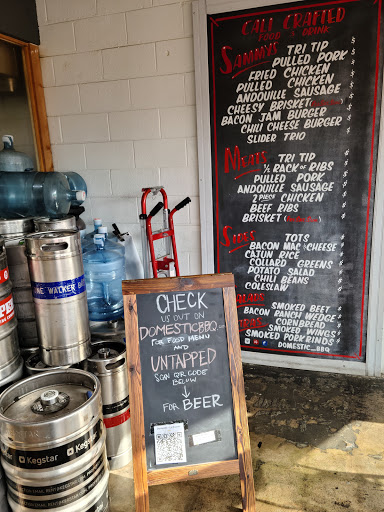 CALI CRAFTED
FOOD & DRINK
SAMMYS TRI TIP
PULLED PORK
FRIED CHICKEN
PULLED CHICKEN
ANDOUILLE SAUSAGE
CHEESY BRISKET
BACON JAM BURGER
CHILI CHEESE BURGER
SLIDER TRIO
MEATS TRI TIP
1/2 RACK OF RIBS
PULLED PORK
ANDOUILLE SAUSAGE
2 PIECE CHICKEN
BEEF RIBS
BRISKET
SIDES TOTS
BACON MAC & CHEESE
CAJUN RICE
COLLARD GREENS
POTATO SALAD
CHILI BEANS
COLESLAW
SMOKED BEET
BACON RANCH WEDGE
CORNBREAD
SMOKED WINGS
SMOKED PORK RINDS
DOMESTIC_BBQ
CHECK
US OUT ON
DOMESTICBBQ
FOR FOOD MENU
AND
UNTAPPED
SCAN QR CODE
BELOW
FOR BEER
NE WALKER B
Kegstar
Kegstar